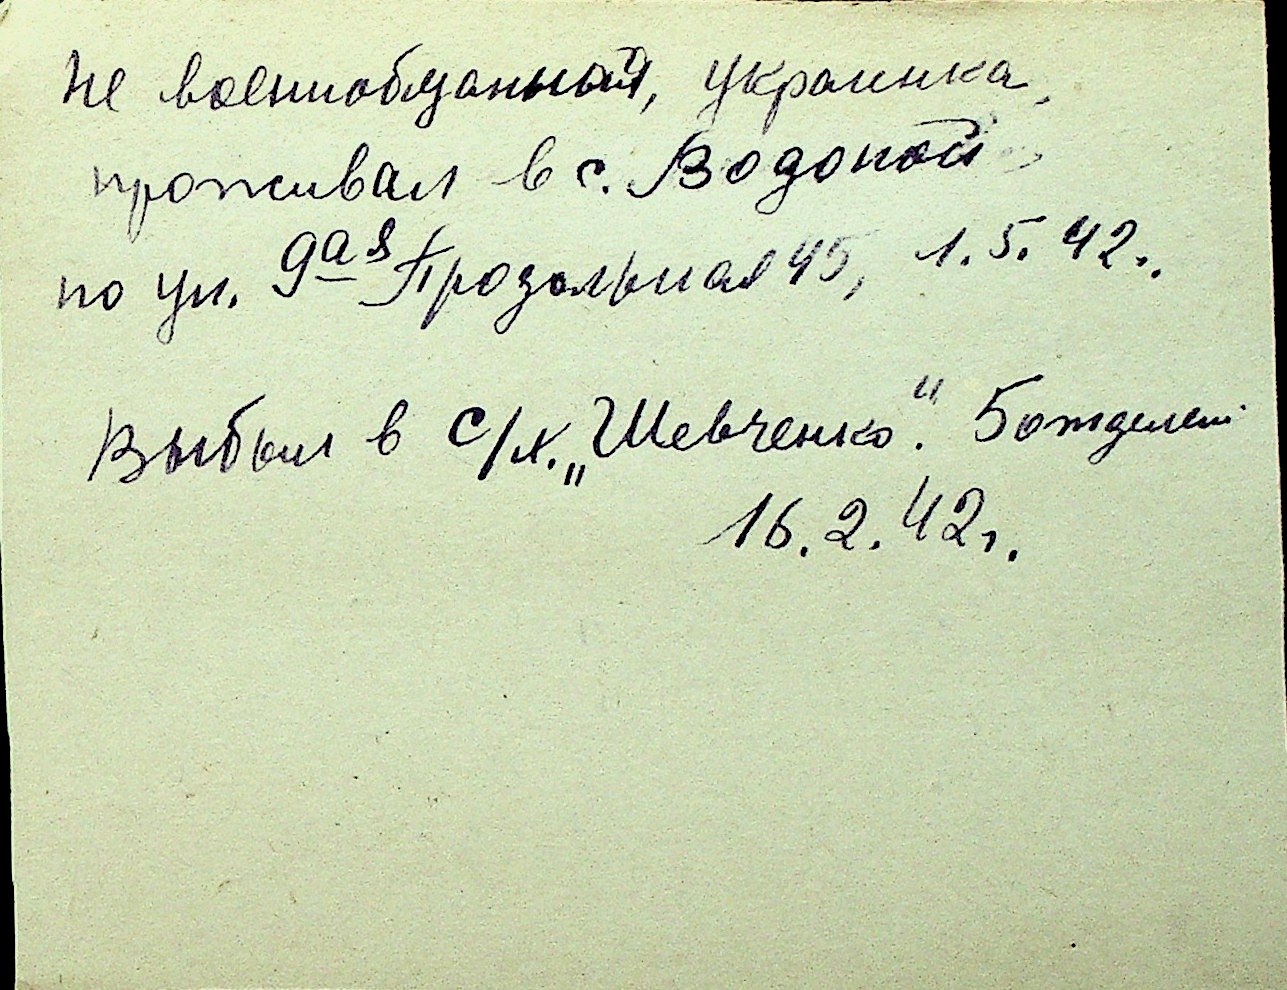 Не военнобязанный, украинка,
проживал в с. Водопой
по ул. 9ая Продольная 45, 1.5.42г.
Выбыл в с/х. „Шевченко". 5 отделен
16.2.42г.